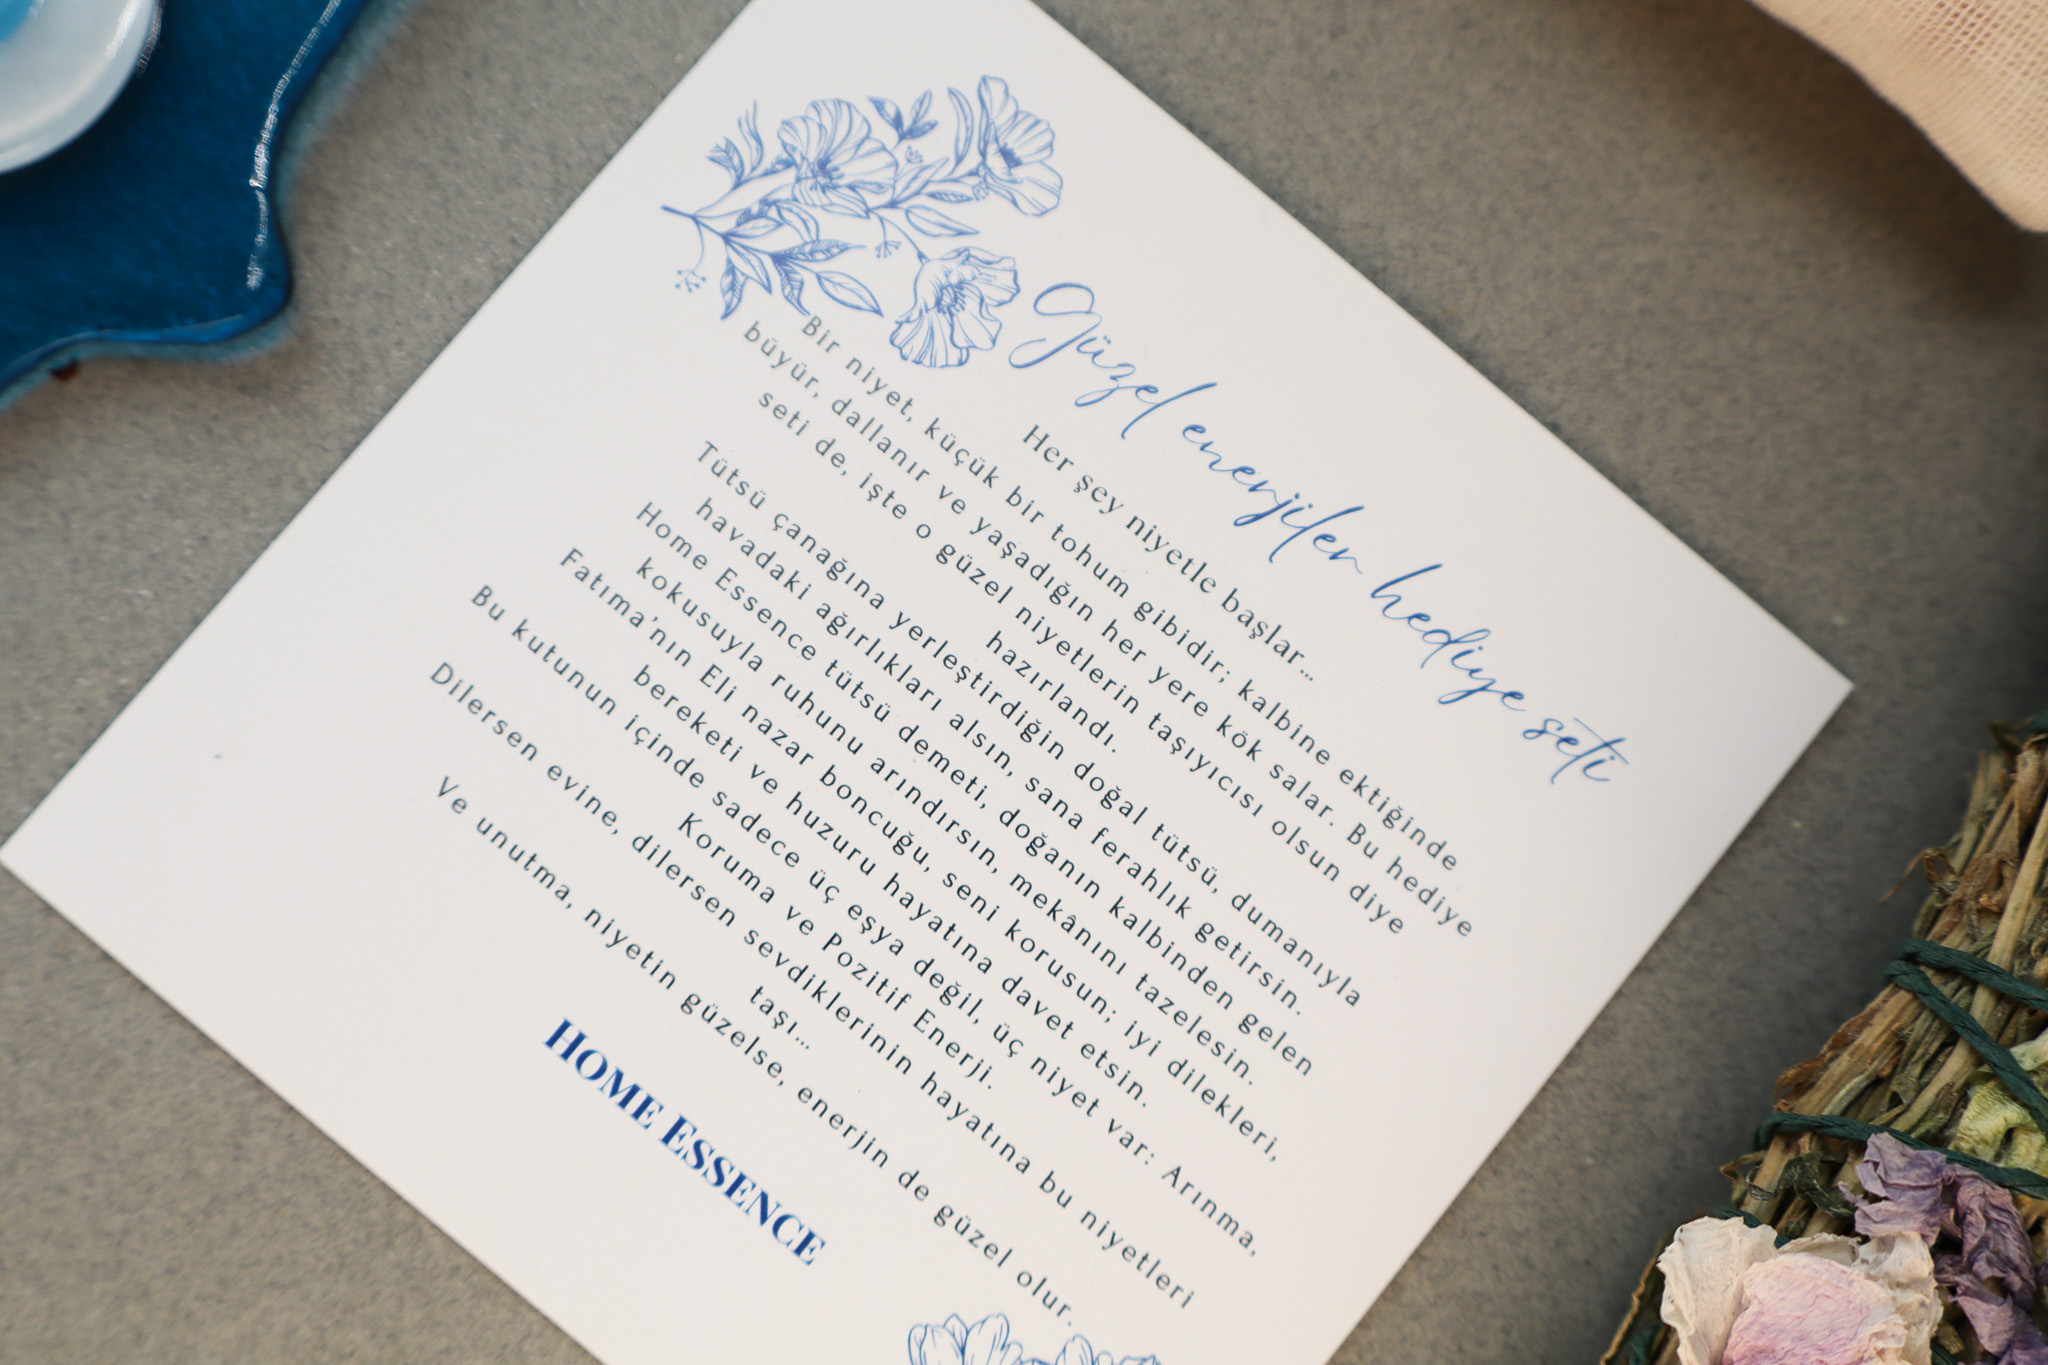 Güzel enerjiler hediye seti
Her şey niyetle başlar...
Bir niyet, küçük bir tohum gibidir; kalbine ektiğinde
büyür, dallanır ve yaşadığın her yere kök salar. Bu hediye
seti de, işte o güzel niyetlerin taşıyıcısı olsun diye
hazırlandı.
Tütsü çanağına yerleştirdiğin doğal tütsü, dumanıyla
havadaki ağırlıkları alsın, sana ferahlık getirsin.
Home Essence tütsü demeti, doğanın kalbinden gelen
kokusuyla ruhunu arındırsın, mekânını tazelesin.
Fatıma’nın Eli nazar boncuğu, seni korusun; iyi dilekleri,
bereketi ve huzuru hayatına davet etsin.
Bu kutunun içinde sadece üç eşya değil, üç niyet var: Arınma,
Koruma ve Pozitif Enerji.
Dilersen evine, dilersen sevdiklerinin hayatına bu niyetleri
taşı...
Ve unutma, niyetin güzelse, enerjin de güzel olur.
HOME ESSENCE